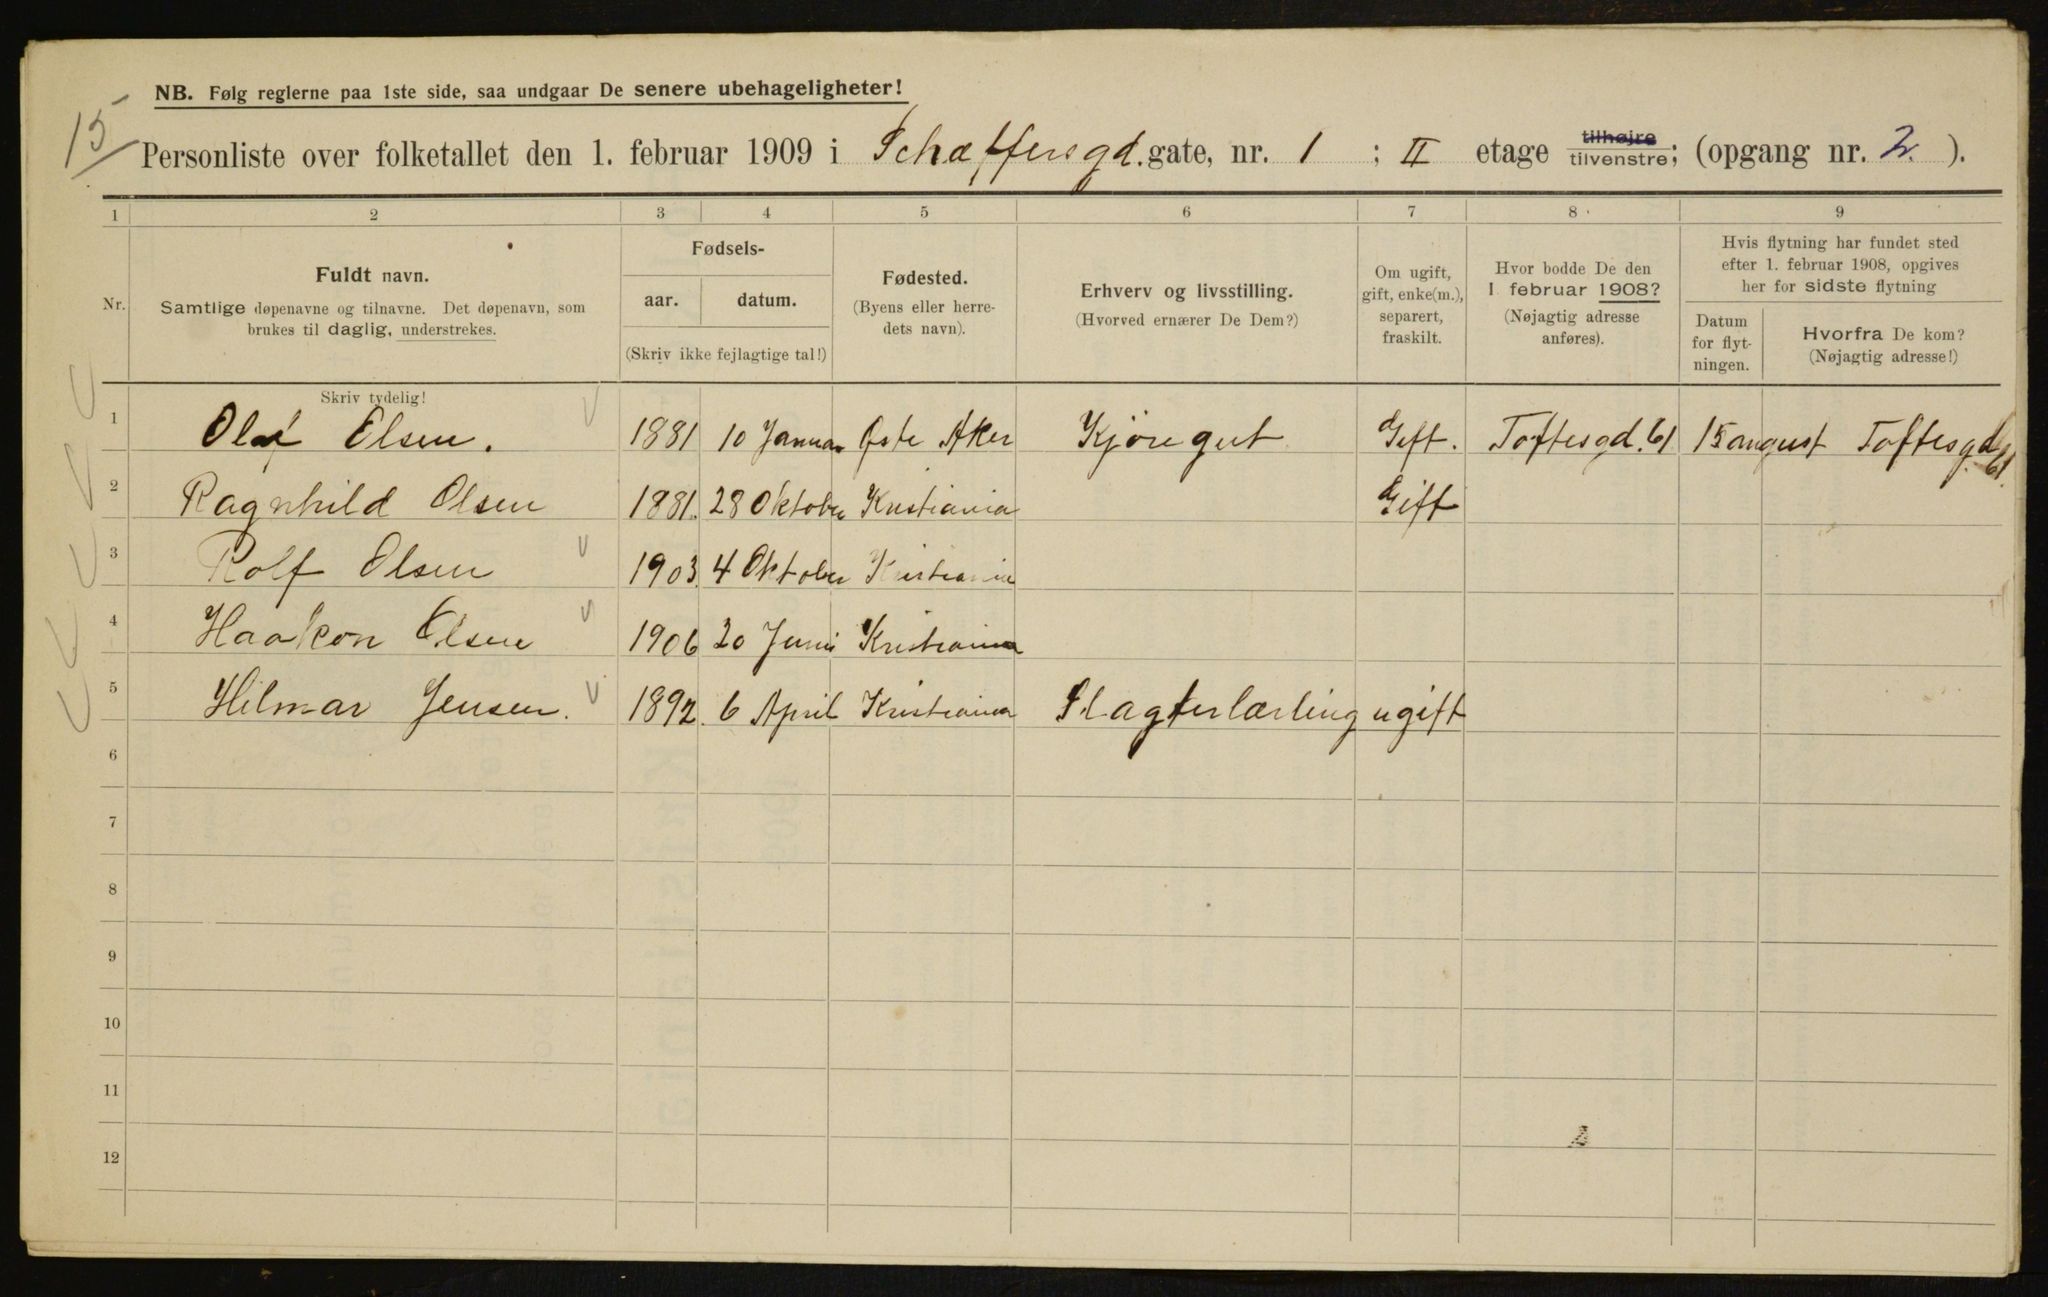 NB. Følg reglerne paa 1ste side, saa undgaar De senere ubehageligheter!
15
Personliste over folketallet den 1. februar 1909 i Schæffersgd. gate, nr. 1 ; II etage tilhøjre tilvenstre; (opgang nr. 2. ).
1 2 3 4 5 6 7 8 9
Nr.
Fuldt navn.
Samtlige døpenavne og tilnavne. Det døpenavn, som
brukes til daglig, understrekes.
Fødsels-
aar. datum.
(Skriv ikke fejlagtige tal!)
Fødested.
(Byens eller herre-
dets navn).
Erhverv og livsstilling.
(Hvorved ernærer De Dem?)
Om ugift,
gift, enke(m.),
separert,
fraskilt.
Hvor bodde De den
1 februar 1908?
(Nøjagtig adresse
anføres).
Hvis flytning har fundet sted
efter 1. februar 1908, opgives
her for sidste flytning
Datum
for flyt-
ningen.
Hvorfra De kom?
(Nøjagtig adresse!)
Skriv tydelig!
1 Olaf Olsen. 1881 10 Januar Østr Aker Kjøregut Gift. Toftesgd. 61 15 august Toftesgd 61.
2 Ragnhild Olsen 1881. 28 Oktober Kristiania Gift
3 Rolf Olsen 1903. 4 Oktober Kristiania
4 Haakon Olsen 1906 20 Juni Kristiania
5 Hilmar Jensen. 1892. 6 April Kristiania Slagterlærling ugift
6
7
8
9
10
11
12